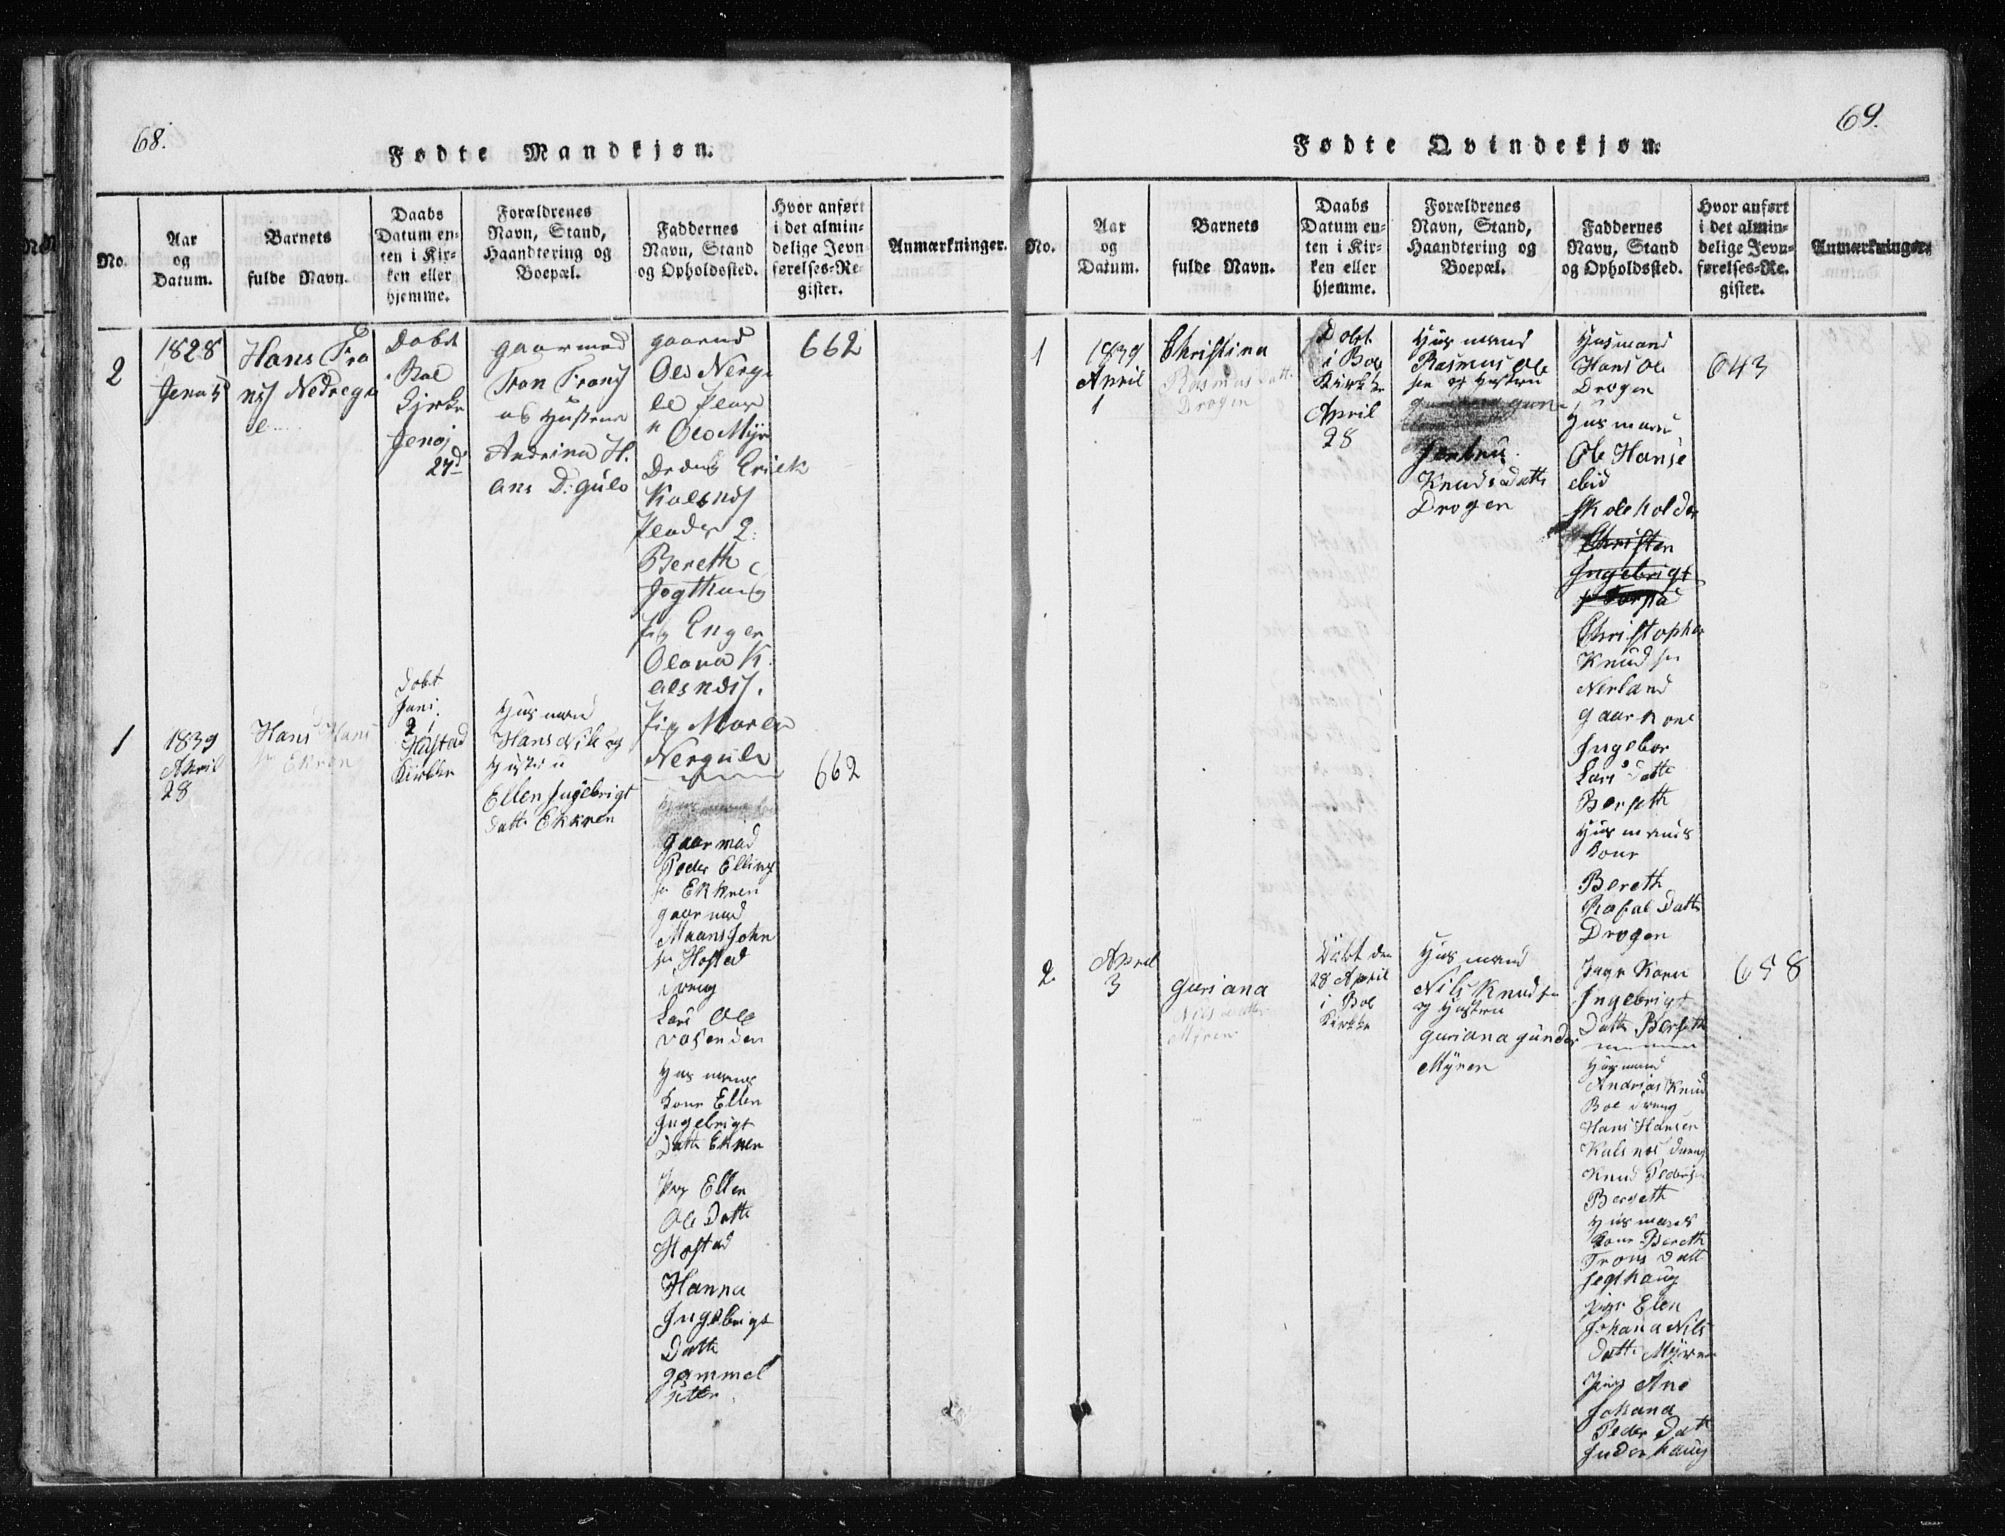 68.
Fødte Mandkjøn.
No.
Aar
og
Datum.
Barnets
fulde Navn.
Daabs
Datum en-
ten i Kir-
ken eller
hjemme.
Forældrenes
Navn, Stand,
Haandtering og
Boepæl.
Faddernes
Navn, Stand
og Opholdssted.
Hvor anført
i det almin-
delige Jevn-
førelses-Re-
gister.
Anmærkninger.
2
1828
Hans Tro
Dobt
Boe
Kirke
27d
gaarmad
Tron Trons
og Hustrue
Andrina H.
gaarmd
Ole Nerge
Ole Myr
Erick
Bereth
Enger
Olava K
Maren
Nergule
662
1
1839
April
28
Hans Hans
sn Ekren
Dobt
Juni
21
Hustad
Kirke
Husmand
Hans Nils og
Hustru
Ellen Ingebrigt
Datte Ekkren
gaarmad
Peder Ellings
sn Ekkren
gaarmad
Maans John
sn Hostad
dreng
Lars Ole
Husmans
Kone Ellen
Ingebrigt
Datte Ekren
Ellen
Ole Datte
Hostad
Hanna
Ingebrigt
Datte
gammel
662
69.
Fødte Qvindekjøn.
No.
Aar
og
Datum.
Barnets
fulde Navn.
Daabs
Datum en-
ten i Kir-
ken eller
hjemme.
Forældrenes
Navn, Stand,
Haandtering og
Boepæl.
Faddernes
Navn, Stand
og Opholdssted.
Hvor anført
i det almin-
delige Jevn-
førelses-Re-
gister.
Anmærkninger.
1
1839
April
1
Christina
Rasmus Datte
Drogen
Dobt
i Boe
Kirke
April
28
Husmand
Rasmus Ole
sen og Hustru
Knuds Datte
Drogen
Husmand
Hans Ole
Drogen
Husmand
Ole Hanse
Eid
Skoleholder
Christen
Ingebrigt
Christopher
Knud sn
Nerland
gaar kone
Ingebor
Lars Datte
Berseth
Husmands
Kone
Bereth
Rafal Datte
Drogen
643
2
April
3
guriana
Nils Datte
Myren
Døbt den
28 April
i Boe
Kirke
Husmand
Nils Knudsn
og Hustru
guriana gunder
Myren
Pige Karn
Ingebrigt
Datte Berseth
Husmand
Andrias Knud
Boe dreng
Hans Hansen
Kalsnes dreng
Knud Peders
Berseth
Husmans
Kone Bereth
Trons Datt
Pige Elen
Johana Nils
Datte Myren
Pige Ane
Johana
Peder Datt
658